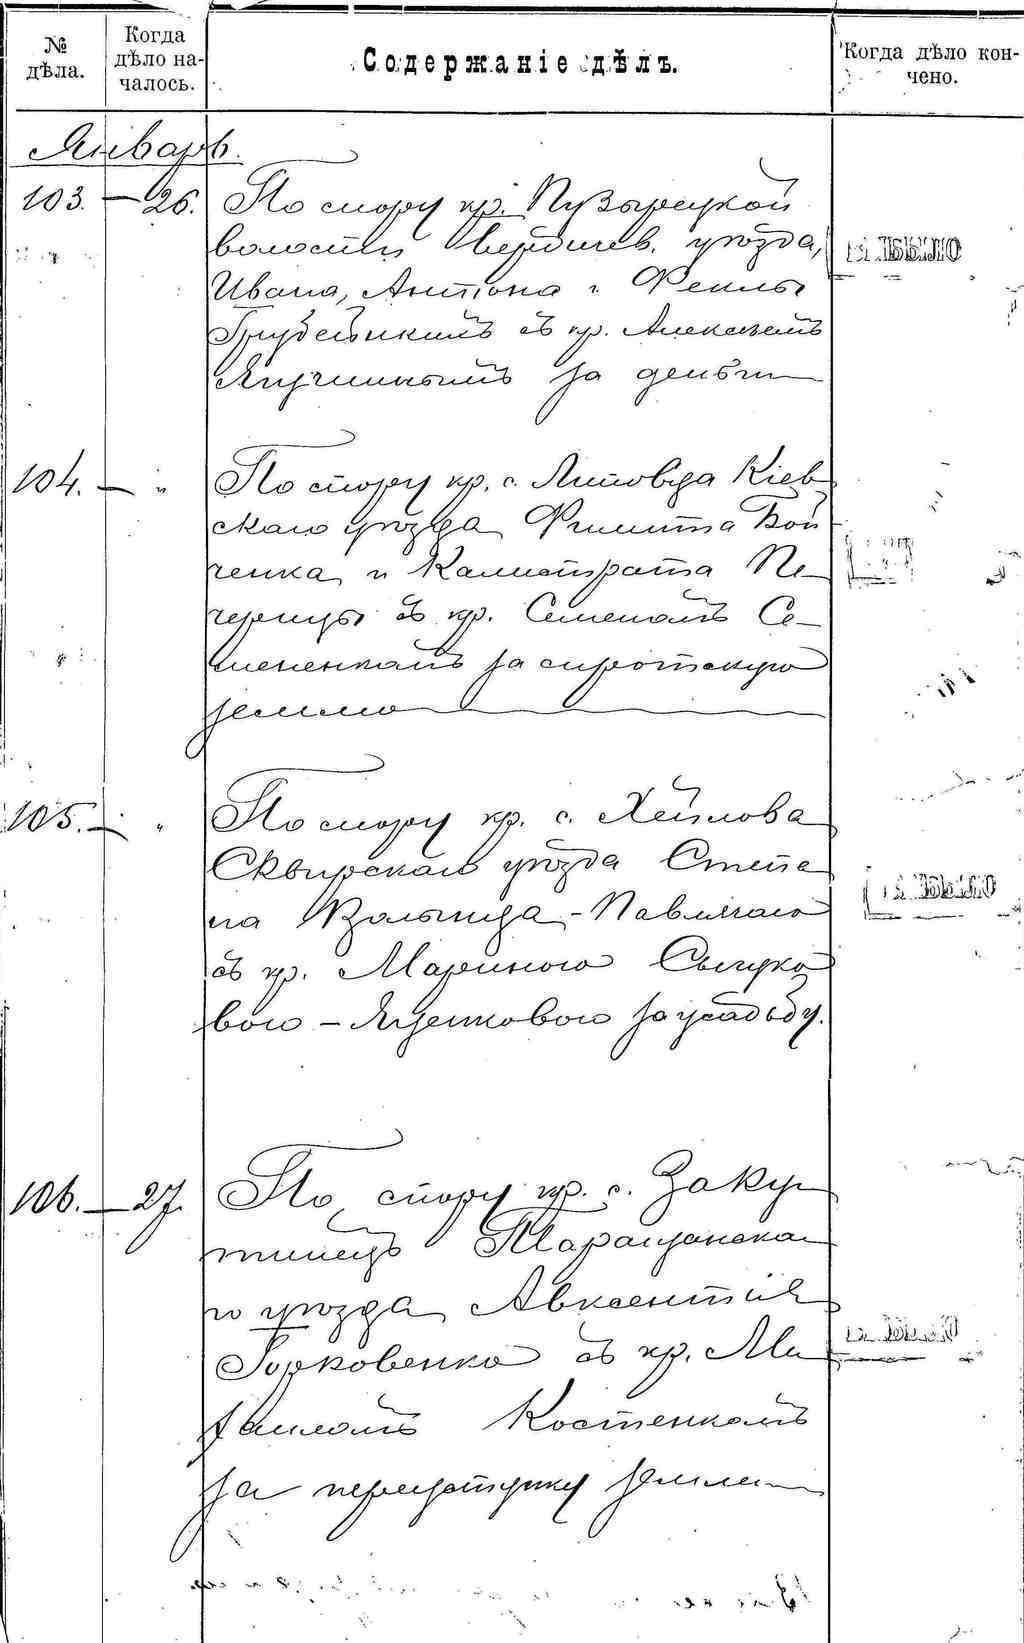 № дѣла.
Когда дѣло началось.
Содержаніе дѣлъ.
Когда дѣло кончено.
Январь.
103. — 26. По спору кр. Пузырецкой
волости Бердичев. уѣзда,
Ивана, Антона и Феклы
съ кр. Алексѣемъ
за деньги
104. — " По спору кр. с. Литовка Кіев
скаго уѣзда Филиппа Бой
ченка и Калистрата Пе
черицы съ кр. Семеномъ Се
мененкомъ за сиротскую
землю
105. — " По спору кр. с. Хейлова
Сквирскаго уѣзда Степа
на Волынца-Павличаго
съ кр. Мариною
вою - Яценковою за усадьбу.
106. — 27. По спору кр. с. Заку
тинецъ Таращанска
го уѣзда Авксентія
Горковенко съ кр. Ми
хаиломъ Костенкомъ
за земли